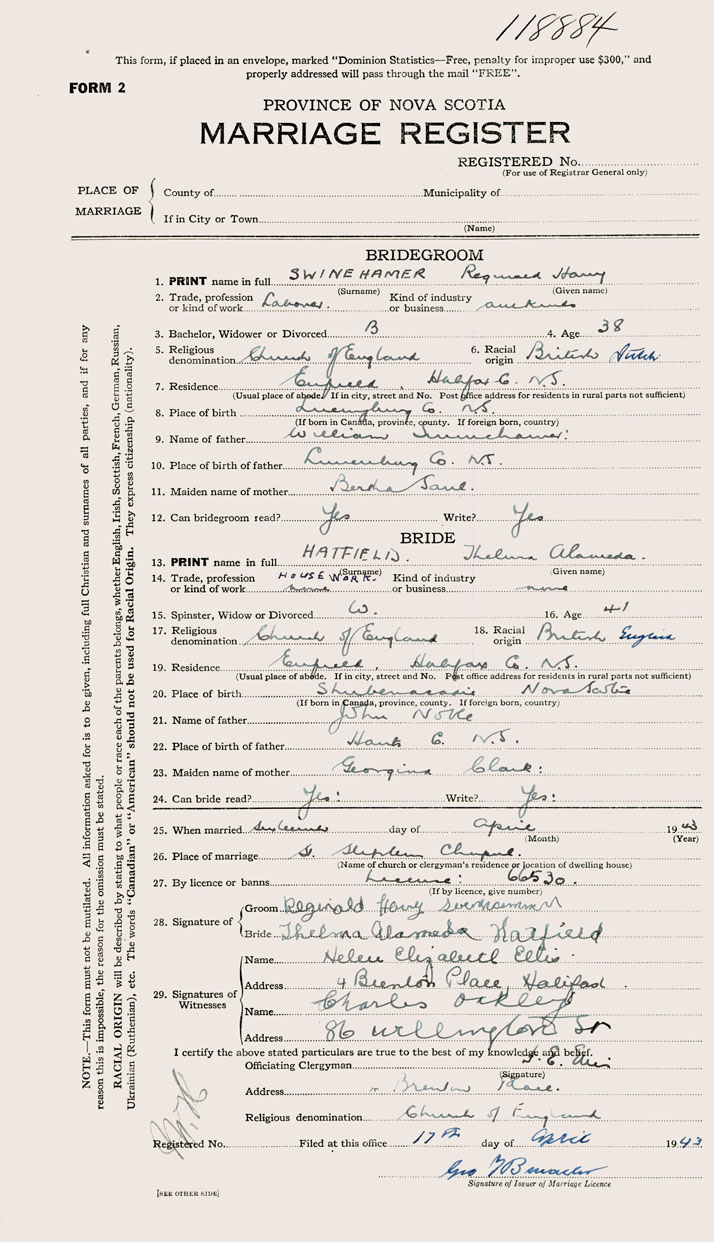 118884
This form, if placed in an envelope, marked "Dominion Statistics—Free, penalty for improper use $300," and
properly addressed will pass through the mail "FREE".
FORM 2
PROVINCE OF NOVA SCOTIA
MARRIAGE REGISTER
REGISTERED No.
(For use of Registrar General only)
PLACE OF MARRIAGE
County of Municipality of
If in City or Town
(Name)
BRIDEGROOM
1. PRINT name in full SWINEHAMER Reginald Harry
(Surname) (Given name)
2. Trade, profession or kind of work Laborer. Kind of industry or business
3. Bachelor, Widower or Divorced B 4. Age 38
5. Religious denomination Church of England 6. Racial origin British Dutch
7. Residence Enfield, Halifax C. N.S.
(Usual place of abode. If in city, street and No. Post office address for residents in rural parts not sufficient)
8. Place of birth Lunenburg Co. N.S.
(If born in Canada, province, county. If foreign born, country)
9. Name of father William Swinehamer:
10. Place of birth of father Lunenburg Co. N.S.
11. Maiden name of mother Bertha
12. Can bridegroom read? Yes Write? Yes
BRIDE
13. PRINT name in full HATFIELD. Thelma Alameda.
(Surname) (Given name)
14. Trade, profession or kind of work HOUSE WORK. none Kind of industry or business none
15. Spinster, Widow or Divorced W. 16. Age 41
17. Religious denomination Church of England 18. Racial origin British English
19. Residence Enfield, Halifax C. N.S.
(Usual place of abode. If in city, street and No. Post office address for residents in rural parts not sufficient)
20. Place of birth Shubenacadie Nova Scotia
(If born in Canada, province, county. If foreign born, country)
21. Name of father John
22. Place of birth of father Hants C. N.S.
23. Maiden name of mother Georgina Clark:
24. Can bride read? Yes: Write? Yes:
25. When married day of April 1943
(Month) (Year)
26. Place of marriage St. Stephen Chapel.
(Name of church or clergyman's residence or location of dwelling house)
27. By licence or banns License: 66530.
(If by licence, give number)
28. Signature of
Groom Reginald Harry
Bride Thelma Alameda Hatfield
29. Signatures of Witnesses
Name Helen Elizabeth Ellis
Address 4 Brenton Place, Halifax
Name Charles Oakley
Address 86 St
I certify the above stated particulars are true to the best of my knowledge and belief.
Officiating Clergyman
(Signature)
Address Brenton Place.
Religious denomination Church of England
Registered No. Filed at this office 17th day of April 1943
Geo
Signature of Issuer of Marriage Licence
[SEE OTHER SIDE]
NOTE.—This form must not be mutilated. All information asked for is to be given, including full Christian and surnames of all parties, and if for any
reason this is impossible, the reason for the omission must be stated.
RACIAL ORIGIN will be described by stating to what people or race each of the parents belongs, whether English, Irish, Scottish, French, German, Russian,
Ukrainian (Ruthenian), etc. The words "Canadian" or "American" should not be used for Racial Origin. They express citizenship (nationality).